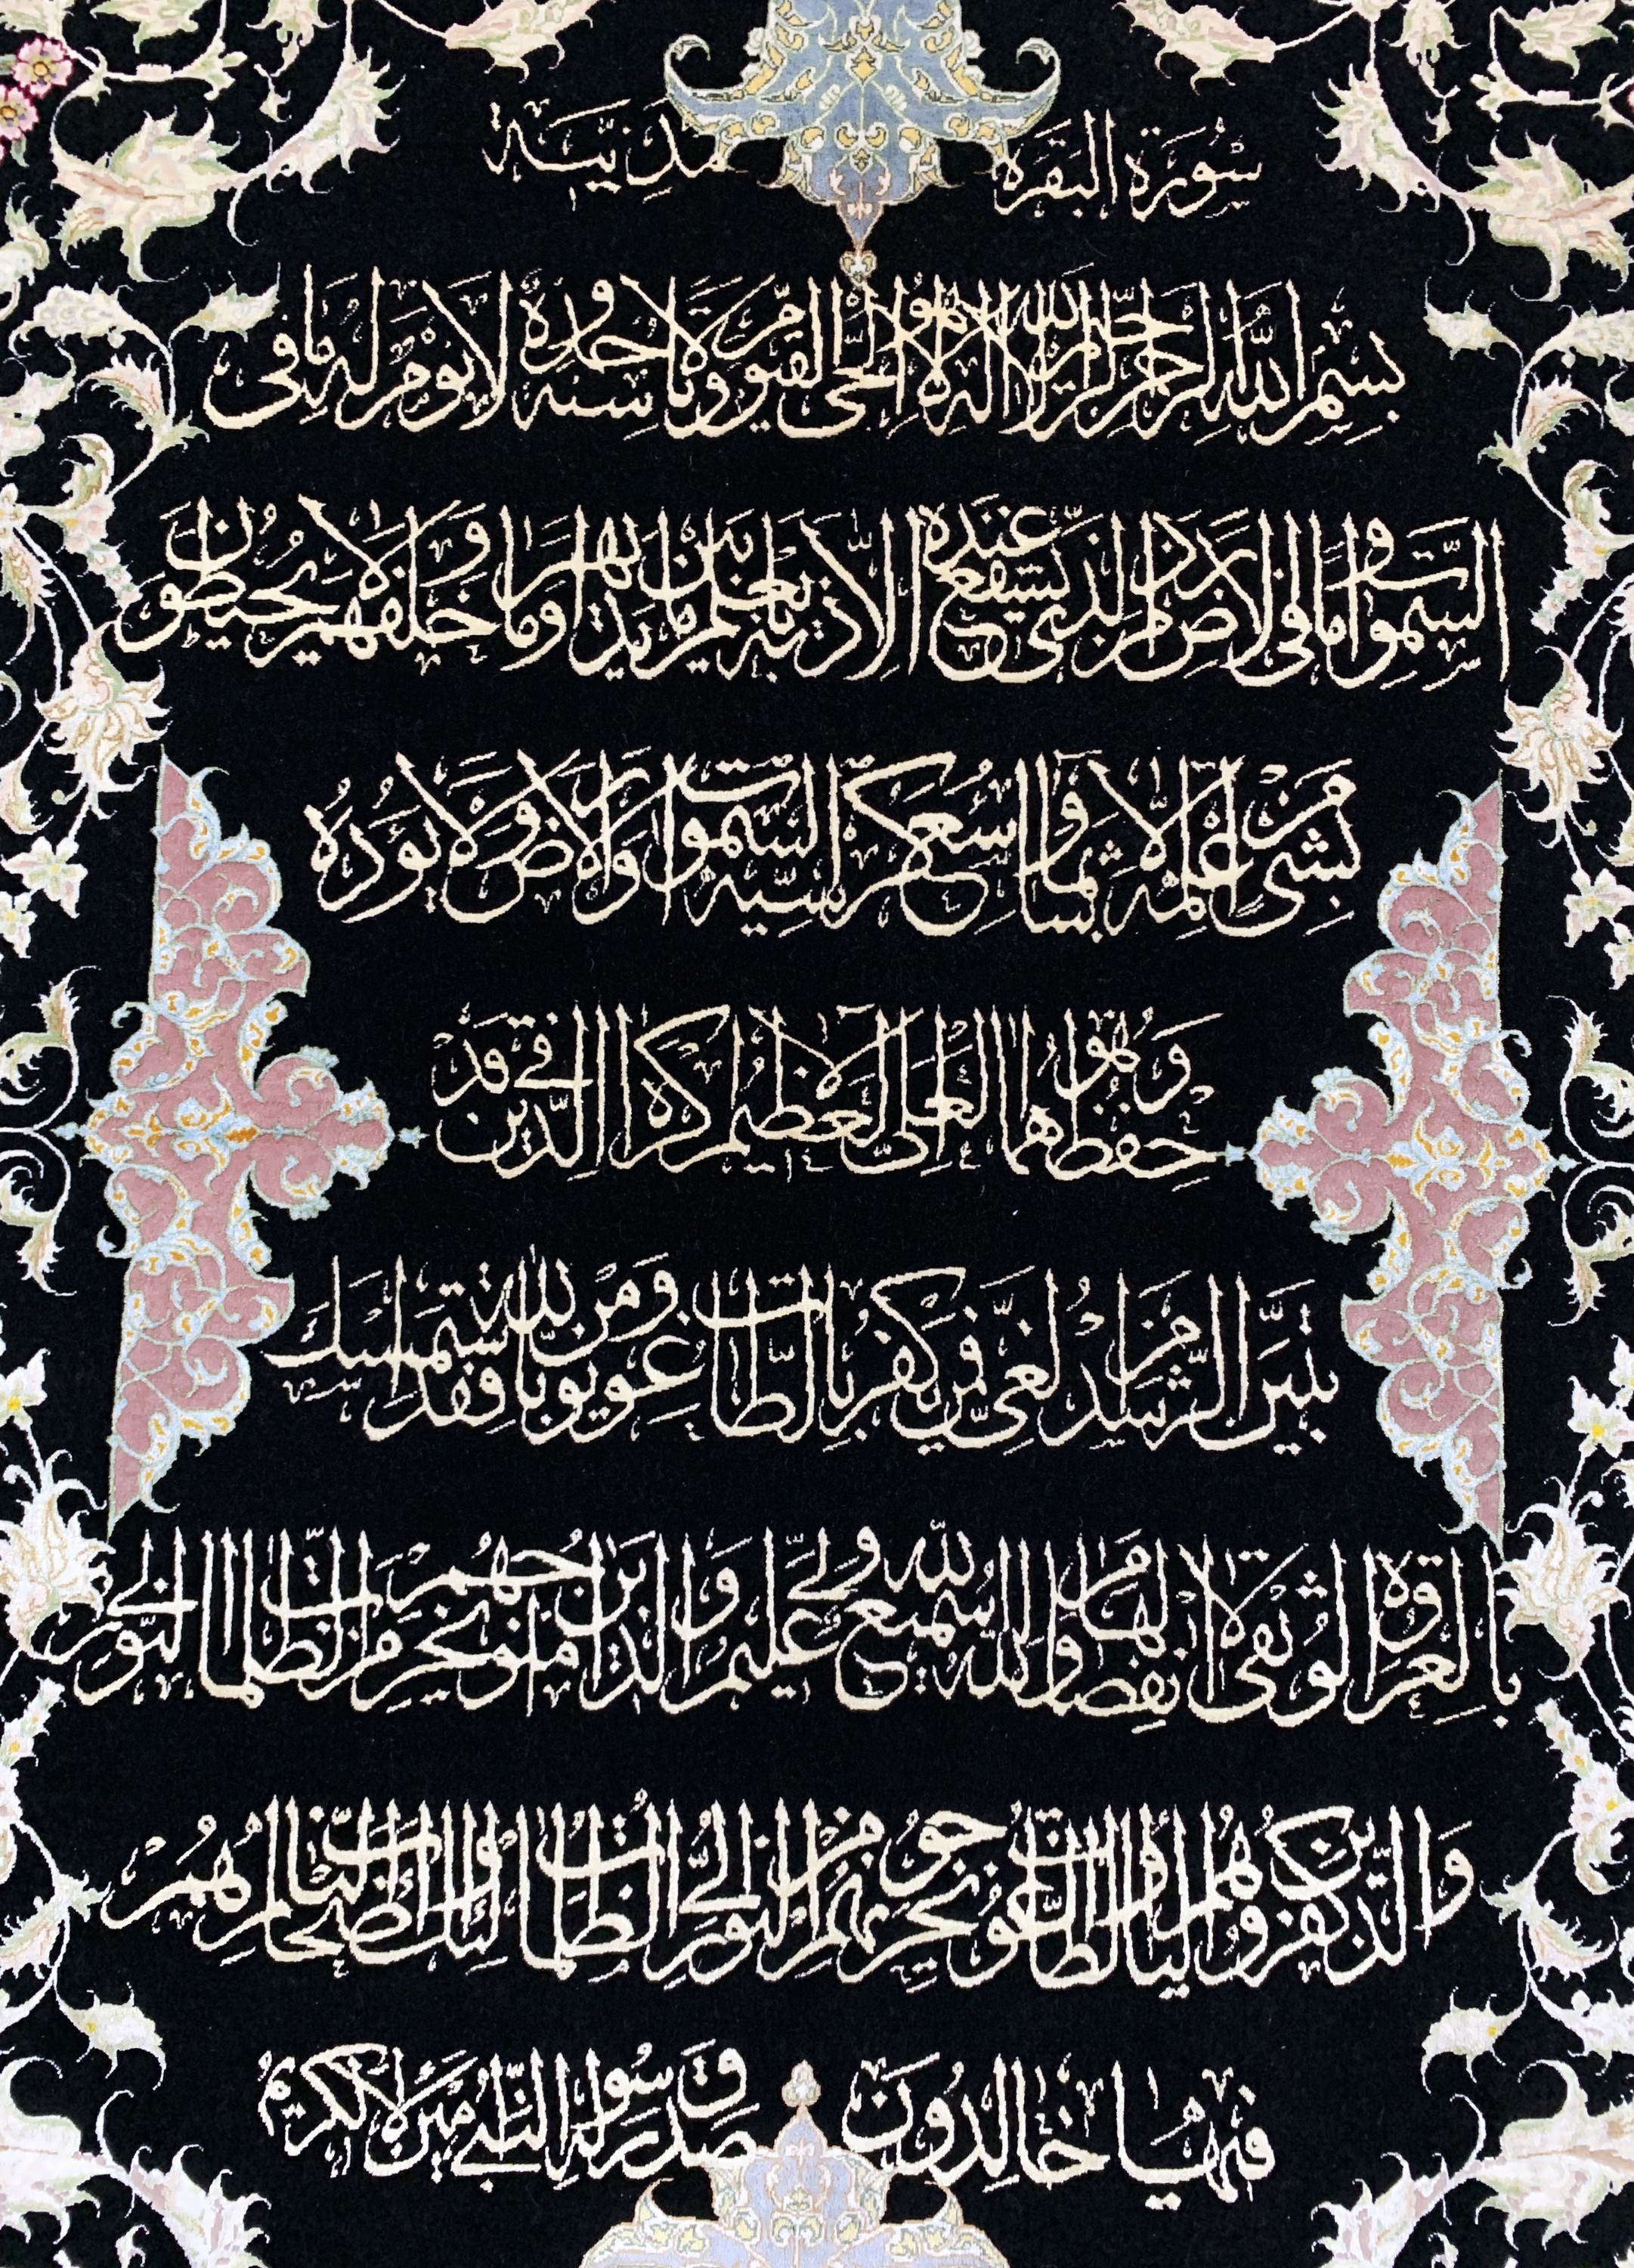 سُورَة البَقَرَه مَدَنِيَّة
بسم الله الرحمن الرحيم الله لا اله الا هو الحى القيوم لا تاخذه سنه ولا نوم له ما فى
السموات وما فى الارض من ذا الذى يشفع عنده الا باذنه يعلم ما بين ايديهم وما خلفهم ولا يحيطون
بشىء من علمه الا بما شاء وسع كرسيه السموات والارض ولا يؤده
حفظهما وهو العلى العظيم لا اكراه فى الدين قد
تبين الرشد من الغى فمن يكفر بالطاغوت ويومن بالله فقد استمسك
بالعروة الوثقى لا انفصام لها والله سميع عليم الله ولى الذين امنوا يخرجهم من الظلمات الى النور
والذين كفروا اولياؤهم الطاغوت يخرجونهم من النور الى الظلمات اولئك اصحاب النار هم
فيها خالدون صدق رسوله النبى الكريم